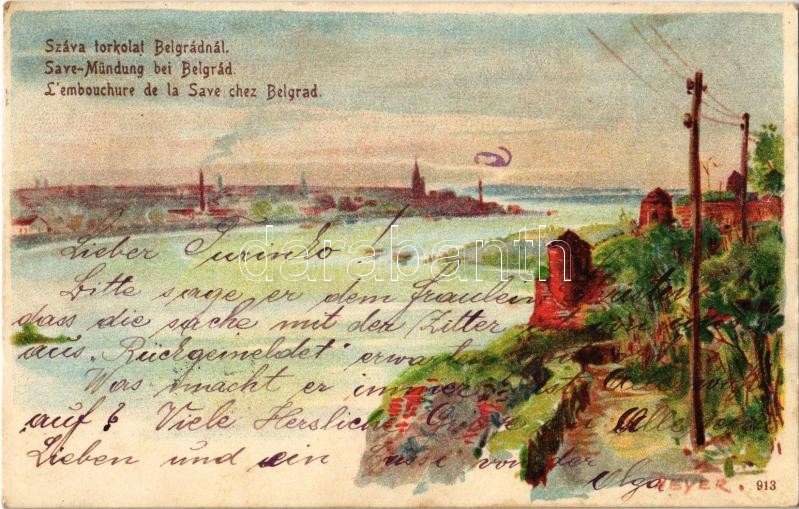 Száva torkolat Belgrádnál.
Save-Mündung bei Belgrád.
L'embouchure de la Save chez Belgrad.
darabanth
Lieber Turinko!
Bitte sage er dem fraulein
dass die sache mit der Zitter ist von
aus "Rückgemeldet" erwarten
Was macht er immer ist
auf? Viele Herslichen Grüsse an Alle
Lieben und ein Bussi von der
Olga
MEYER.
913